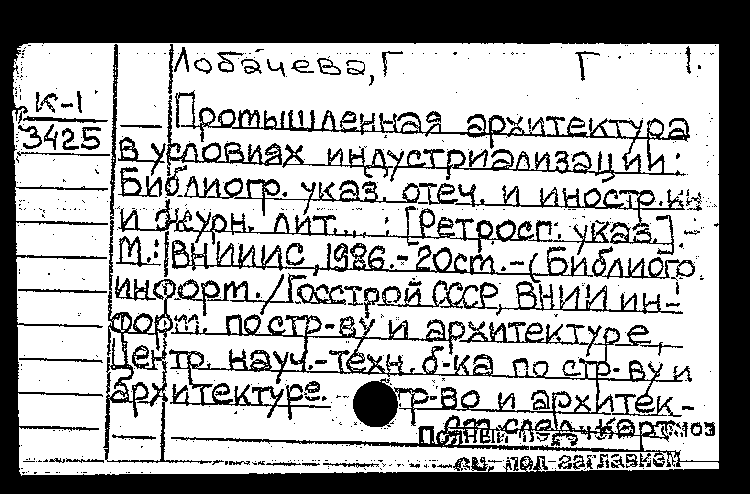 Лобачева, Г Г 1.
К-1
3425
Промышленная архитектура
в условиях индустриализации:
Библиогр. указ. отеч. и иностр. кн
и журн. лит... : [Ретросп. указ.]. -
М.: ВНИИИС, 1986. - 20 ст. - (Библиогр.
информ. / Госстрой СССР, ВНИИ ин-
форм. по стр-ву и архитектуре,
Центр. науч.-техн. б-ка по стр-ву и
архитектуре. тр-во и архитек-
см. след. карт.
Полный
см. под заглавием